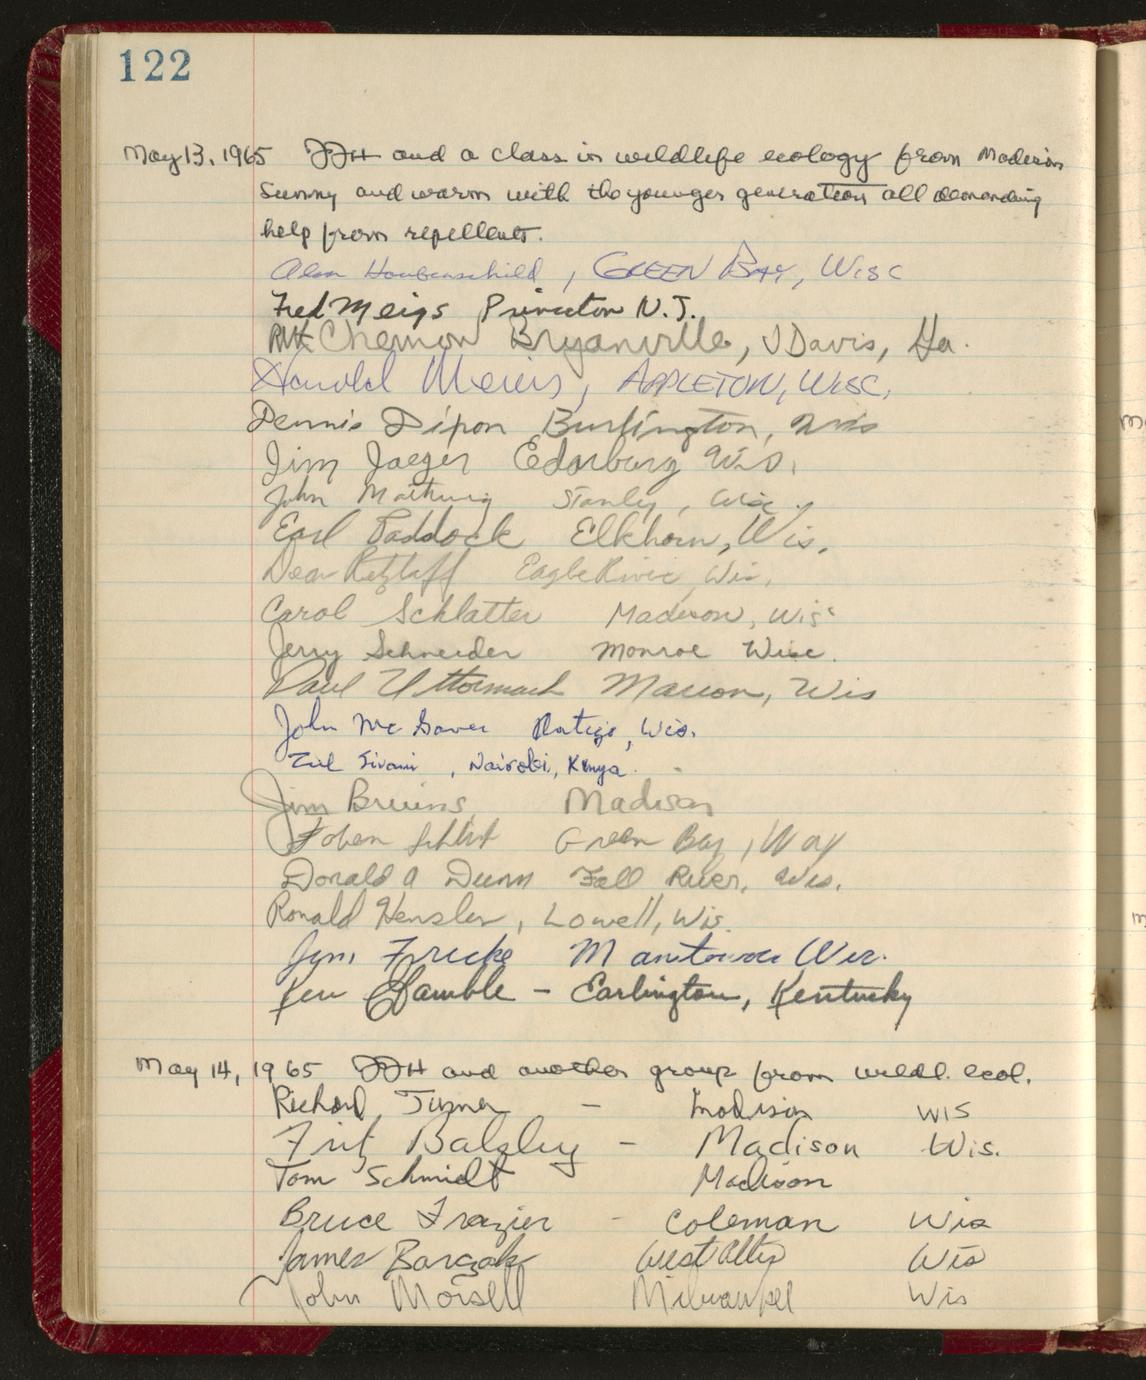 122
May 13, 1965 JJH and a class in wildlife ecology from Madison
Sunny and warm with the younger generation all demanding
help from repellents.
Alan Haubenschild, GREEN BAY, WISC
Fred Meigs Princeton N.J.
Chemon Bryanville, J Davis, Ga.
Harold Meiers, APPLETON, WISC.
Dennis Dixon Burlington, Wis
Jim Jaeger Edarburg Wis.
John Mathwig Stanly, Wisc.
Earl Paddock Elkhorn, Wis.
Dean Retzlaff Eagle River, Wis.
Carol Schlatter Madison, Wis.
Jerry Schneider Monroe Wisc.
Paul Uttormark Marion, Wis
John Mc Gaver Wis.
Nairobi, Kenya.
Jim Bruins, Madison
Green Bay, Way
Donald A Dunn Fall River, Wis.
Ronald Hensler, Lowell, Wis.
Jim Fricke Manitowoc Wis.
Ken Gamble - Earlington, Kentucky
May 14, 1965 JJH and another group from wildl. ecol.
Richard Turner - Madison WIS
Balsley - Madison Wis.
Tom Schmidt Madison
Bruce Frazier - Coleman Wis
James Barczak West Allis Wis
John Moisell Milwaukee Wis